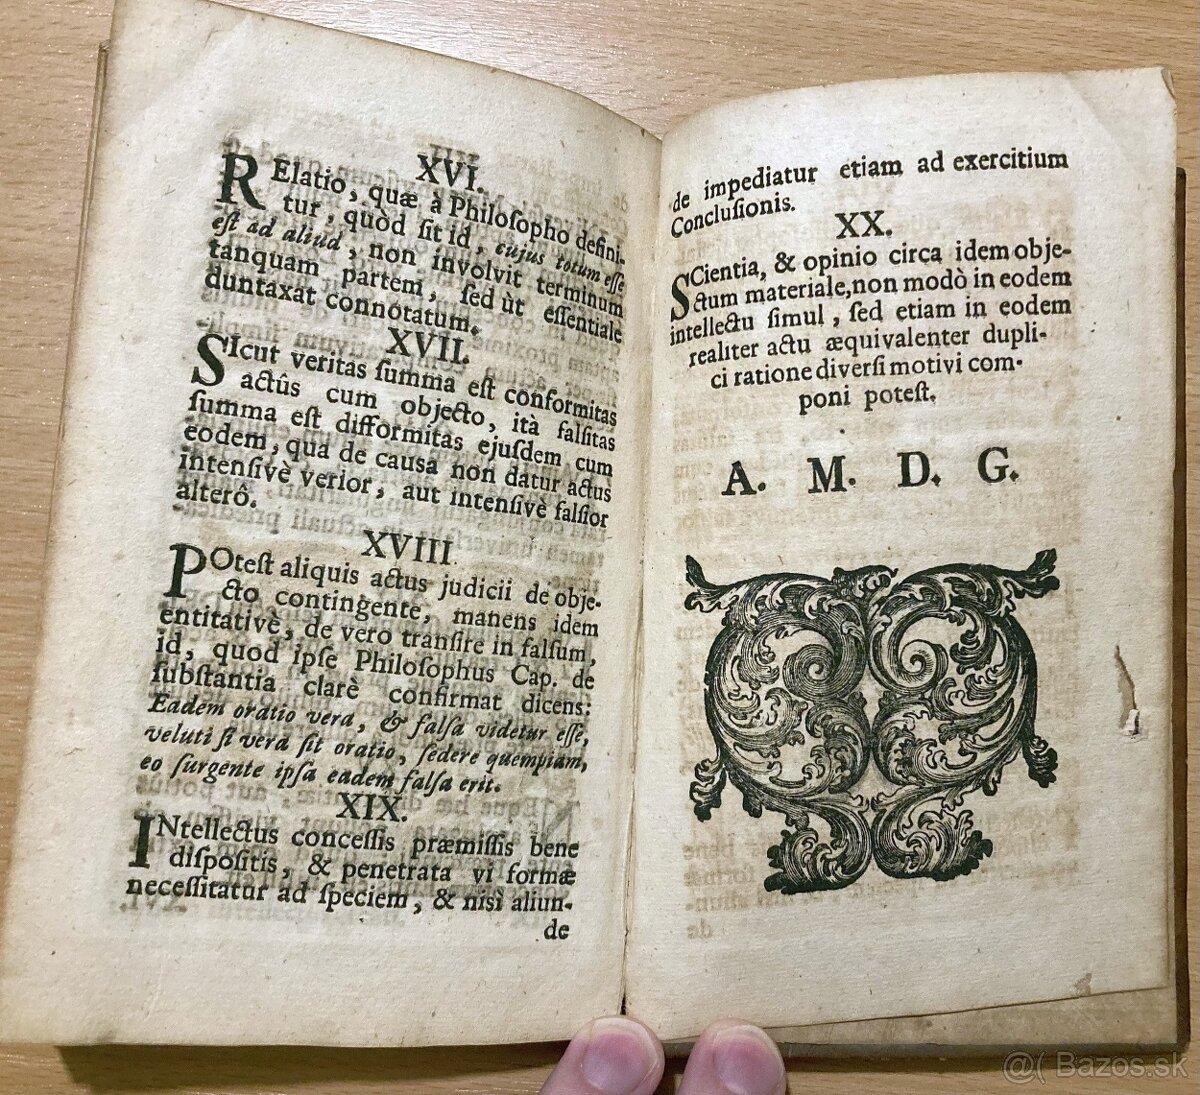 XVI.
RElatio, quæ à Philoſopho defini-
tur, quòd ſit id, cujus totum eſſe
eſt ad aliud, non involvit terminum
tanquam partem, ſed ùt eſſentiale
duntaxat connotatum.
XVII.
SIcut veritas ſumma eſt conformitas
actûs cum objecto, ità falſitas
ſumma eſt difformitas ejuſdem cum
eodem, qua de causa non datur actus
intenſivè verior, aut intenſivè falſior
alterô.
XVIII.
POteſt aliquis actus judicii de obje-
cto contingente, manens idem
entitativè, de vero transire in falſum,
id, quod ipſe Philoſophus Cap. de
ſubſtantia clarè confirmat dicens:
Eadem oratio vera, & falſa videtur eſſe,
veluti ſi vera ſit oratio, ſedere quempiam,
eo ſurgente ipſa eadem falſa erit.
XIX.
INtellectus conceſſis præmiſſis bene
diſpoſitis, & penetrata vi formæ
neceſſitatur ad ſpeciem, & niſi aliun-
de
de impediatur etiam ad exercitium
Concluſionis.
XX.
SCientia, & opinio circa idem obje-
ctum materiale, non modò in eodem
intellectu ſimul, ſed etiam in eodem
realiter actu æquivalenter dupli-
ci ratione diverſi motivi com-
poni poteſt.
A. M. D. G.
@( Bazos.sk